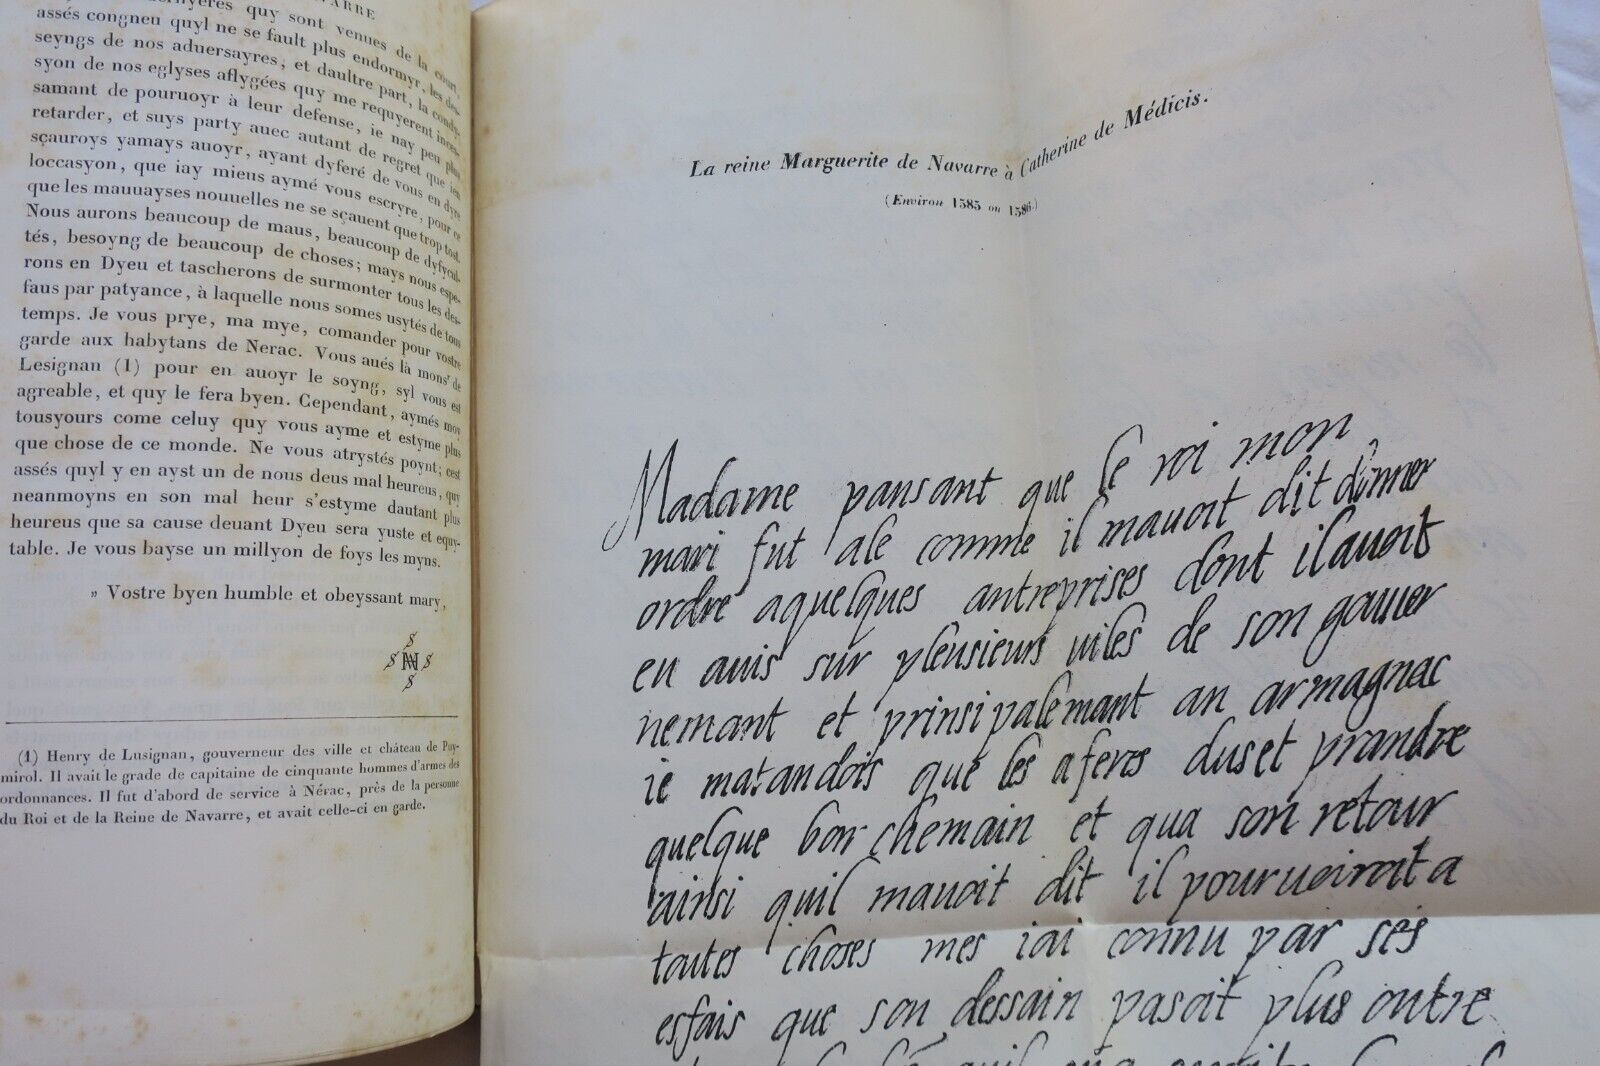 ARRE
quy sont venues de la court,
assés congneu quyl ne se fault plus endormyr, les des-
seyngs de nos aduersayres, et daultre part, la condy-
syon de nos eglyses aflygées quy me requyerent inces-
samant de pouruoyr à leur defense, ie nay peu plus
retarder, et suys party auec autant de regret que ien
sçauroys yamays auoyr, ayant dyferé de vous en dyre
loccasyon, que iay mieus aymé vous escryre, pour ce
que les mauuayses nouuelles ne se sçauent que trop tost.
Nous aurons beaucoup de maus, beaucoup de dyfycul-
tés, besoyng de beaucoup de choses; mays nous espe-
rons en Dyeu et tascherons de surmonter tous les des-
faus par patyance, à laquelle nous somes usytés de tous
temps. Je vous prye, ma mye, comander pour vostre
garde aux habytans de Nerac. Vous aués là monsr de
Lesignan (1) pour en auoyr le soyng, syl vous est
agreable, et quy le fera byen. Cependant, aymés moy
tousyours come celuy quy vous ayme et estyme plus
que chose de ce monde. Ne vous atrystés poynt; cest
assés quyl y en ayst un de nous deus mal heureus, quy
neanmoyns en son mal heur s'estyme dautant plus
heureus que sa cause deuant Dyeu sera yuste et equy-
table. Je vous bayse un millyon de foys les myns.
» Vostre byen humble et obeyssant mary,
(1) Henry de Lusignan, gouverneur des ville et château de Puy-
mirol. Il avait le grade de capitaine de cinquante hommes d'armes des
ordonnances. Il fut d'abord de service à Nérac, près de la personne
du Roi et de la Reine de Navarre, et avait celle-ci en garde.
La reine Marguerite de Navarre à Catherine de Médicis.
(Environ 1585 ou 1586.)
Madame pansant que le roi mon
mari fut ale comme il mauoit dit donner
ordre aquelques antreprises dont il auoit
eu auis sur pleusieurs uiles de son gouuer
nemant et prinsipalemant an armagnac
ie matandois que les aferes duset prandre
quelque bon chemain et qua son retour
ainsi quil mauoit dit il pourueoiroit a
toutes choses mes iai connu par ses
esfais que son dessain pasoit plus outre